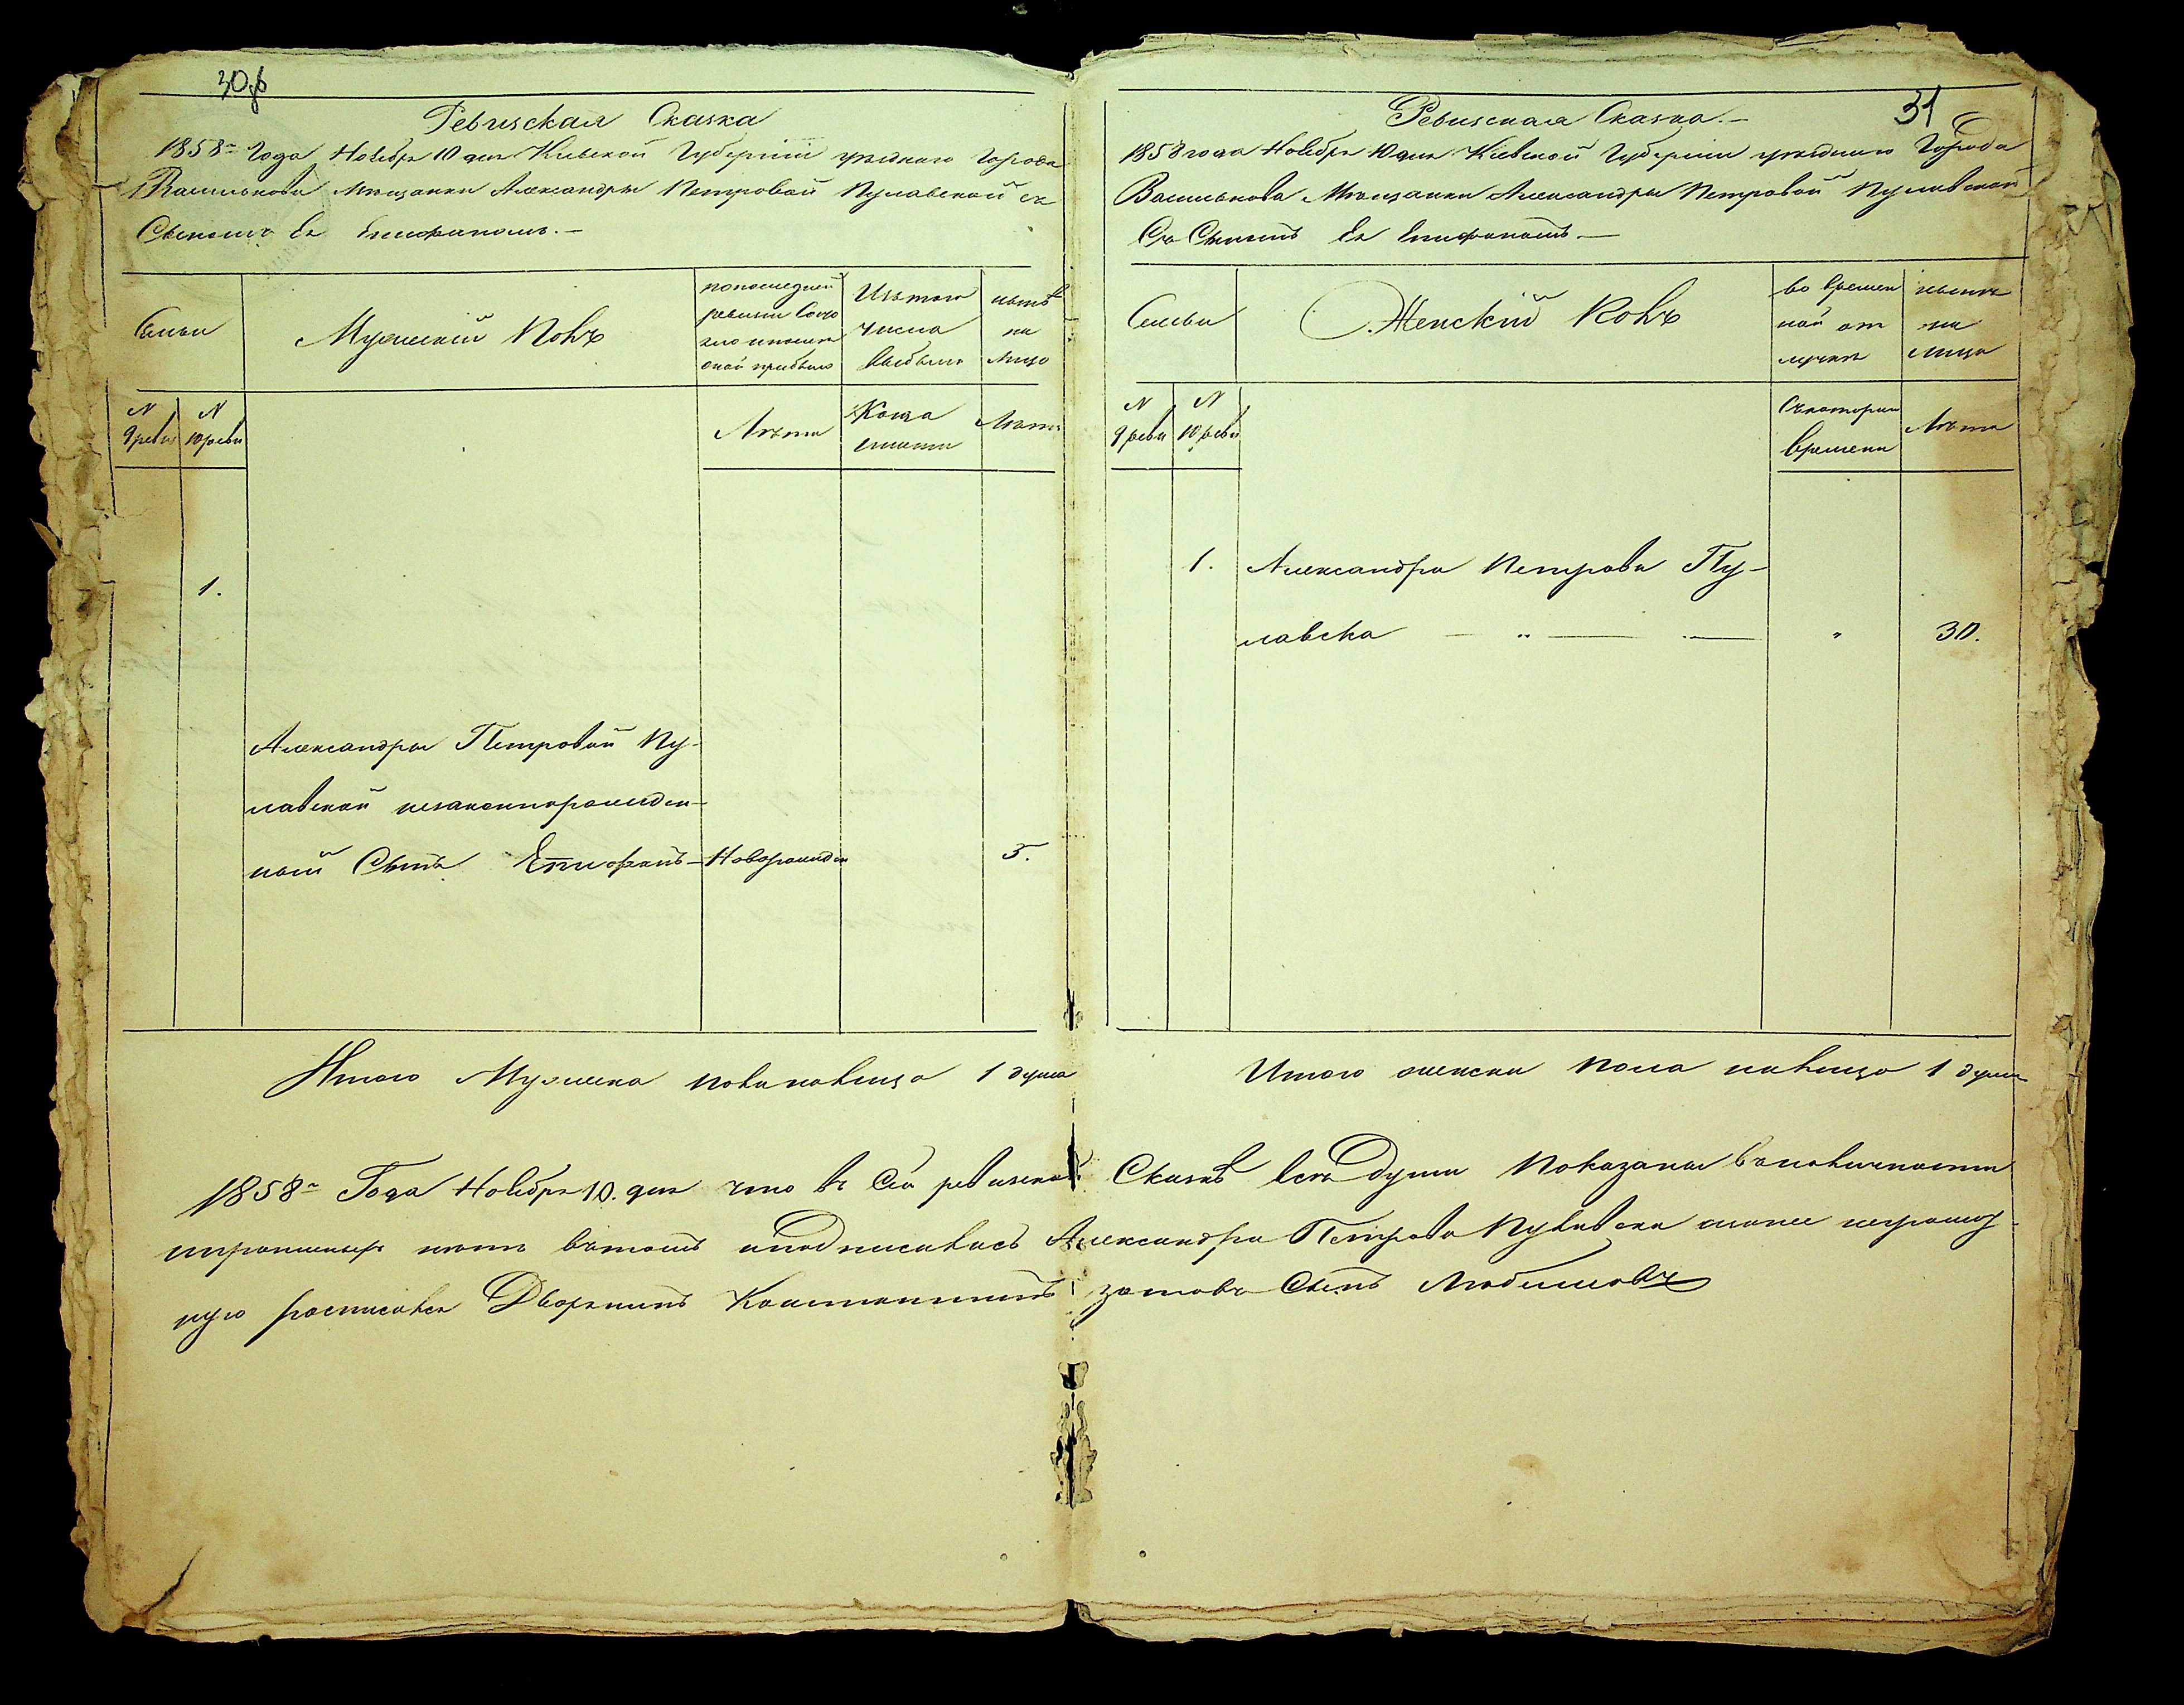 30об
Ревизская Сказка
1858го Года Ноября 10 дня Киевской Губернии уезднаго Города
Василькова Мещанки Александры Петровой Пулавской съ
Сыномъ Ея Епифаномъ.—
Семьи
Мужеский Полъ
по последней
ревизии Состо
яло и после
оной прибыло
Изъ того
числа
выбыло
ныне
на
лицо
N
9 реви
N
10 реви
Лета
Когда
именно
Лета
1.
Александры Петровой Пу-
лавской незаконнорожден-
ной Сынъ Епифанъ — Новорожден 5.
Итого Мужеска пола налицо 1 душа
31
Ревизская Сказка.—
1858 года Ноября 10 дня Киевской Губернии уезднаго Города
Василькова Мещанки Александры Петровой Пулавской
Съ Сыномъ Ея Епифаномъ —
Семьи
Женский Полъ
во времен
ной от
лучке
ныне
на
лицо
N
9 реви
N
10 реви
Съ котораго
времени
Лета
1. Александра Петрова Пу-
лавска — " — — " 30.
Итого женска пола налицо 1 душа
1858го Года Ноября 10. дня что въ Сей ревизской Сказке все Души показаны въ наличности
и прописныхъ нетъ въ томъ и подписалась Александра Петрова Пулавска а за нее неграмот-
ную росписался Дворянинъ Константинъ Сынъ